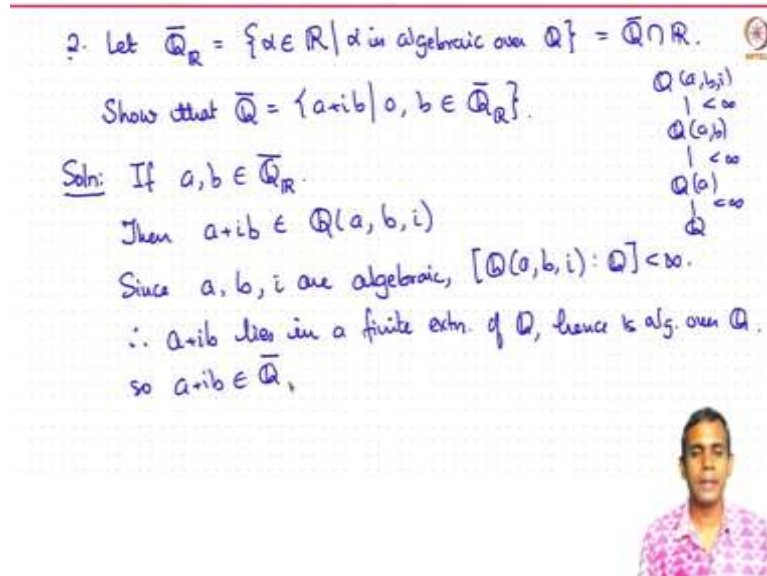 2. Let Q̄_R = {α ∈ R | α is algebraic over Q} = Q̄ ∩ R.
Show that Q̄ = {a+ib | a, b ∈ Q̄_R}.
Q(a,b,i)
| < ∞
Q(a,b)
| < ∞
Q(a)
| < ∞
Q
Soln: If a, b ∈ Q̄_R.
Then a+ib ∈ Q(a, b, i)
Since a, b, i are algebraic, [Q(a,b,i) : Q] < ∞.
∴ a+ib lies in a finite extn. of Q, hence is alg. over Q.
so a+ib ∈ Q̄,
NPTEL